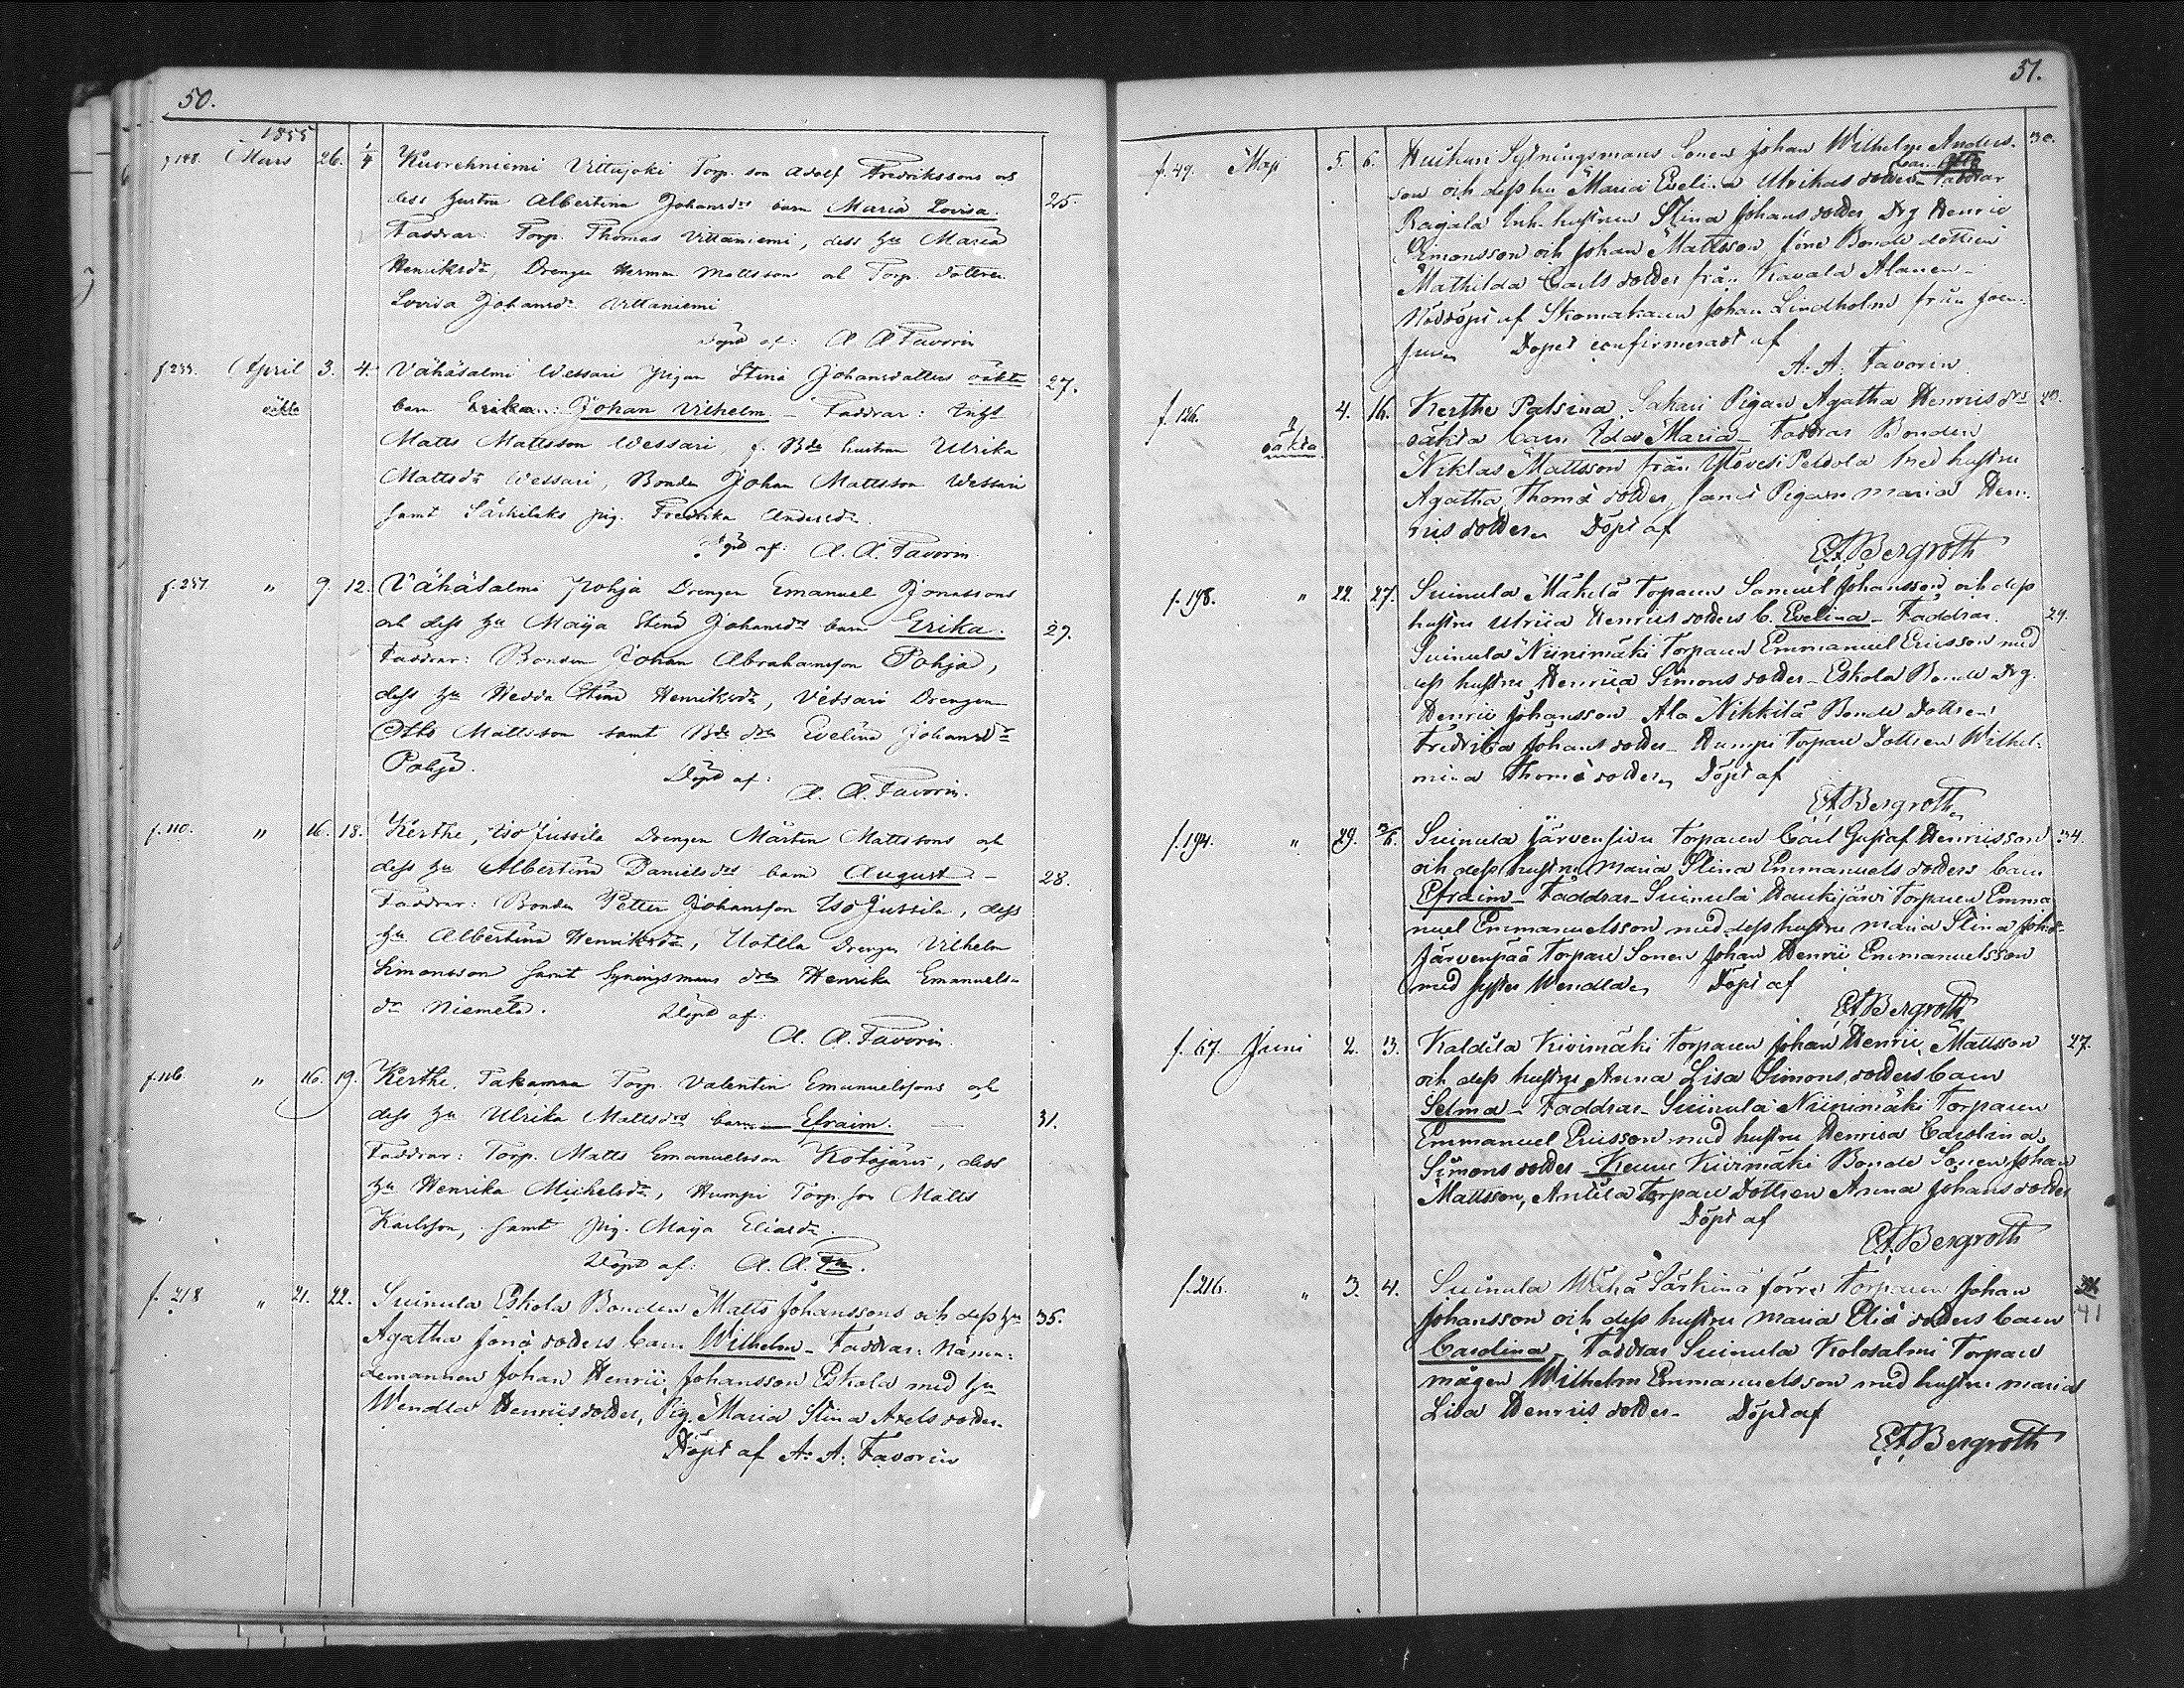 50.
1855
f 148. Mars 26. 1/4 Kuorehniemi Vittajoki Torp. son Adolf Fredrikssons och
dess hustru Albertina Johansdrs barn Maria Lovisa. 25.
Faddrar: Torp. Thomas Vittaniemi, dess hu Maria
Henriksdr, Drengen Herman Mattsson och Torp. dottren
Lovisa Johansdr Vittaniemi
Döpt af: A A Favorin
f 233. April 3. 4. Vähäsalmi Wessari Pigan Stina Johansdotters oäkta 27.
oäkta barn Johan Vilhelm – Faddrar: Inhs
Matts Mattsson Wessari, f. Bde hustrun Ulrika
Mattsdr Wessari, Bonden Johan Mattsson Wessari
samt Särkilaks pig. Fredrika Andersdr.
Döpt af: A. A. Favorin.
f. 257. " 9. 12. Vähäsalmi Pohja Drengen Emanuel Jonassons
och dess hu Maija Stina Johansdrs barn Erika. 29.
Faddrar: Bonden Johan Abrahamsson Pohja,
dess hu Hedda Stina Henriksdr, Vessari Drengen
Otto Mattsson samt Bde dtr Evelina Johansdr
Pohja. Döpt af:
A. A. Favorin.
f. 110. " 16. 18. Kerthe, Iso Jussila Drengen Mårten Mattssons och
dess hu Albertina Danielsdrs barn August – 28.
Faddrar: Bonden Petter Johansson Iso Jussila, dess
hu Albertina Henriksdr, Uotila Drengen Vilhelm
Simonsson samt Sytningsmans dtr Henrika Emanuels-
dr Niemelä. Döpt af:
A. A. Favorin.
f. 116. " 16. 19. Kerthe, Takamaa Torp. Valentin Emanuelssons och
dess hu Ulrika Mattsdrs barn – Efraim. – 31.
Faddrar: Torp. Matts Emanuelsson Kotojärvi, dess
hu Henrika Michelsdr, Humpi Torp. son Matts
Karlsson, samt pig. Maija Eliasdr.
Döpt af: A. A. Fn.
f. 218 " 21. 22. Suinula Eskola Bonden Matts Johanssons och dess hu 35.
Agatha Jona dotters barn Wilhelm – Faddrar: Näm̅-
demannen Johan Henric Johansson Eskola med hu
Wendla Henricsdotter, Pig. Maria Stina Axels dotter
Döpt af A. A. Favorin
51.
f. 49. Maji 5. 6. Sytningsmans Sonen Johan Wilhelm Anders- 30.
son och dess hu Maria Evelina Ulrikas dotters Faddrar
Rajala Inh. hustrun Stina Johans dotter, Drg Henric
Simonsson och Johan Mattsson, förre Bonde dottren
Mathilda Carls dotter från Kavala Alanen –
Nöddöpt af Skomakaren Johan Lindholm från
Döpet confirmeradt af
A. A. Favorin.
f. 126. " 4. 16. Kerthe Palsina Sakari Pigan Agatha Henricsdrs
oäkta oäkta barn Ida Maria – Faddrar Bonden
Niklas Mattsson från Ylövesi Peltola med hustru
Agatha Thomä dotter, samt Pigan Maria Hen-
ricsdotter Döpt af
E. A. Bergroth
f. 198. " 22. 27. Suinula Mäkelä Torparen Samuel Johansson och dess
hustru Ulrica Henrics dotters b. Evelina – Faddrar. 29.
Suinula Niinimäki Torparen Emmanuel Ericsson med
dess hustru Henrica Simons dotter – Eskola Bonde Drg.
Henric Johansson – Ala Nikkilä Bonde Dottren
Fredrika Johans dotter – Humpi Torpare Dottren Wilhel-
mina Thomä dotter Döpt af
E. A. Bergroth
f. 194. " 29. 3/6. Suinula Järvensivu Torparen Carl Gustaf Henricsson 34.
och dess hustru Maria Stina Emmanuels dotters barn
Efraim – Faddrar – Suinula Haukijärvi Torparen Emma
nuel Emmanuelsson med dess hustru Maria Stina Johsdr
Järvenpää Torpare Sonen Johan Henric Emmanuelsson
med syster Wendla Döpt af
E. A. Bergroth
f. 67. Juni 2. 3. Kaldila Kivimäki Torparen Johan Henric Mattsson 47.
och dess hustru Anna Lisa Simons dotters barn
Selma – Faddrar – Suinula Niinimäki Torparen
Emmanuel Ericsson med hustru Henrica Carolina
Simons dotter – Kivimäki Bonde Sonen Johan
Mattsson, Anttila Torpare Dottren Anna Johans dotter
Döpt af
E. A. Bergroth
f. 216. " 3. 4. Suinula Wähä Särkinä förre Torparen Johan
Johansson och dess hustru Maria Eliä dotters barn 41
Carolina – Faddrar Suinula Kolosalmi Torpare
mågen Wilhelm Emmanuelsson med hustru Maria
Lisa Henrics dotter – Döpt af
E. A. Bergroth